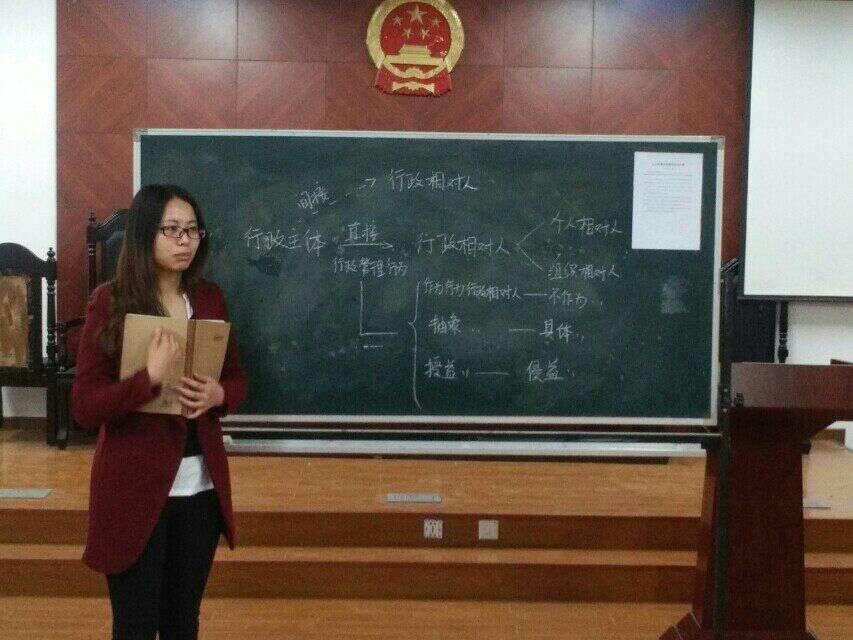 间接 → 行政相对人
行政主体 直接 → 行政相对人
行政管理行为
个人相对人
组织相对人
作为行为行政相对人 —— 不作为〃
抽象〃 —— 具体〃
授益〃 —— 侵益〃